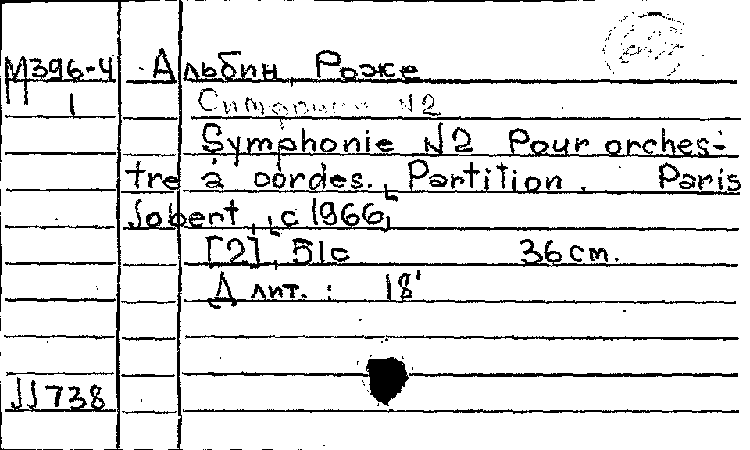 М396-4 Альбин, Роже
1 Симфония №2
Symphonie N2 Pour orches-
tre à cordes. Partition. Paris
Jobert, с 1966,
[2], 51с 36 cm.
Длит.: 18'
JJ738